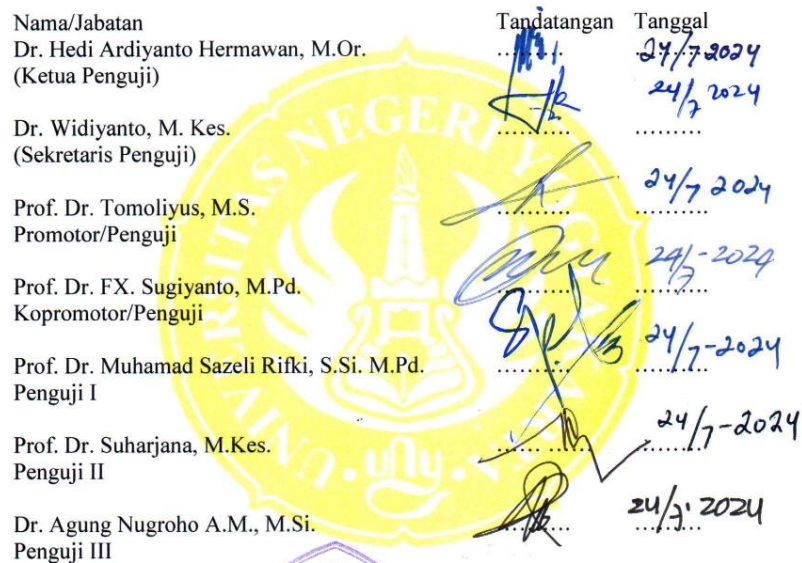 Nama/Jabatan Tandatangan Tanggal
Dr. Hedi Ardiyanto Hermawan, M.Or. 24/7 2024
(Ketua Penguji)
24/7 2024
Dr. Widiyanto, M. Kes. .........
(Sekretaris Penguji)
Prof. Dr. Tomoliyus, M.S. 24/7 2024
Promotor/Penguji
24/7-2024
Prof. Dr. FX. Sugiyanto, M.Pd.
Kopromotor/Penguji
24/7-2024
Prof. Dr. Muhamad Sazeli Rifki, S.Si. M.Pd.
Penguji I
24/7-2024
Prof. Dr. Suharjana, M.Kes.
Penguji II
24/7. 2024
Dr. Agung Nugroho A.M., M.Si.
Penguji III
UNIVERSITAS NEGERI YOGYAKARTA
uny